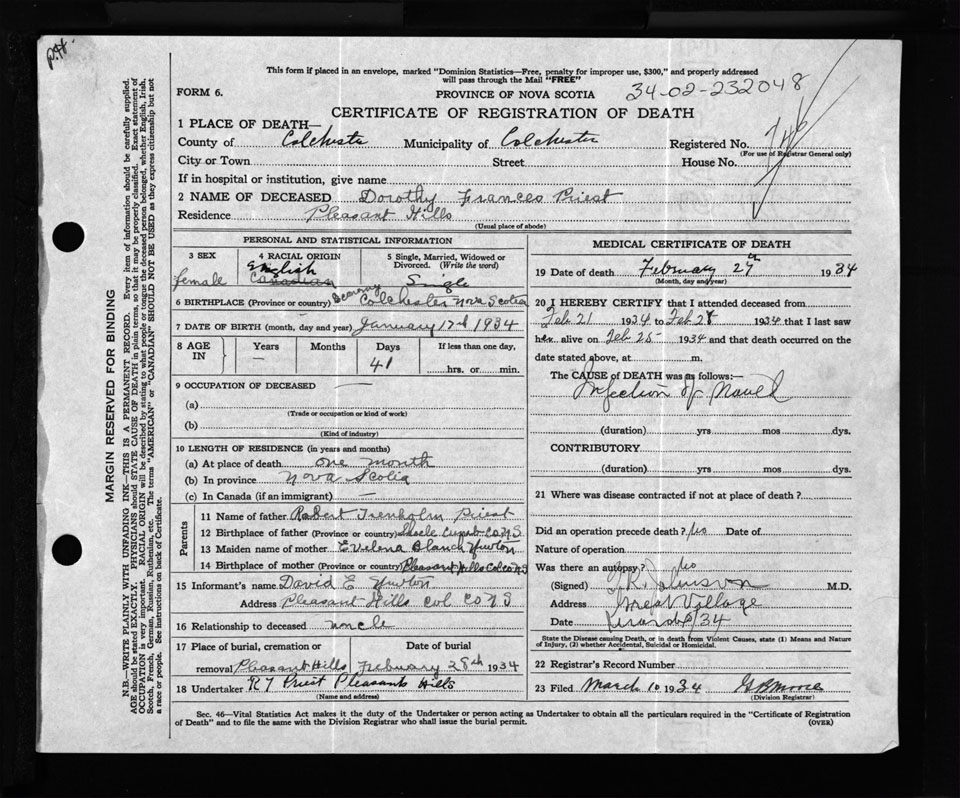 P.H.
This form if placed in an envelope, marked "Dominion Statistics—Free, penalty for improper use, $300," and properly addressed
will pass through the Mail "FREE"
FORM 6.
PROVINCE OF NOVA SCOTIA
34-02-232048
CERTIFICATE OF REGISTRATION OF DEATH
1 PLACE OF DEATH—
County of Colchester Municipality of Colchester Registered No.
(For use of Registrar General only)
City or Town Street House No.
If in hospital or institution, give name
2 NAME OF DECEASED Dorothy Frances Priest
Residence Pleasant Hills
(Usual place of abode)
PERSONAL AND STATISTICAL INFORMATION
3 SEX 4 RACIAL ORIGIN 5 Single, Married, Widowed or Divorced. (Write the word)
female English Canadian Single
6 BIRTHPLACE (Province or country) Colchester Nova Scotia
7 DATE OF BIRTH (month, day and year) January 17d 1934
8 AGE IN Years Months Days If less than one day,
— 41 hrs. or min.
9 OCCUPATION OF DECEASED —
(a)
(Trade or occupation or kind of work)
(b)
(Kind of industry)
10 LENGTH OF RESIDENCE (in years and months)
(a) At place of death one month
(b) In province Nova Scotia
(c) In Canada (if an immigrant) —
Parents
11 Name of father Robert Trenholm Priest
12 Birthplace of father (Province or country) Co N S
13 Maiden name of mother Evelena Blanch Newton
14 Birthplace of mother (Province or country) Pleasant Hills Col co N S
15 Informant's name David E Newton
Address Pleasant Hills Col Co N S
16 Relationship to deceased uncle
17 Place of burial, cremation or removal Date of burial
Pleasant Hills Febuary 28th 1934
18 Undertaker R T Priest Pleasant Hills
(Name and address)
MEDICAL CERTIFICATE OF DEATH
19 Date of death February 27th 1934
(Month, day and year)
20 I HEREBY CERTIFY that I attended deceased from
Feb 21 1934 to Feb 28 1934 that I last saw
her alive on Feb 25 1934 and that death occurred on the
date stated above, at m.
The CAUSE OF DEATH was as follows:—
Infection of Navel
(duration) yrs mos dys.
CONTRIBUTORY
(duration) yrs mos dys.
21 Where was disease contracted if not at place of death?
Did an operation precede death? No Date of
Nature of operation
Was there an autopsy? No
(Signed) T R Johnson M.D.
Address Great Village
Date /34
State the Disease causing Death, or in death from Violent Causes, state (1) Means and Nature
of Injury, (2) whether Accidental, Suicidal or Homicidal.
22 Registrar's Record Number
23 Filed March 10 1934 G B
(Division Registrar)
Sec. 46—Vital Statistics Act makes it the duty of the Undertaker or person acting as Undertaker to obtain all the particulars required in the "Certificate of Registration
of Death" and to file the same with the Division Registrar who shall issue the burial permit.
(OVER)
MARGIN RESERVED FOR BINDING
N.B.—WRITE PLAINLY WITH UNFADING INK—THIS IS A PERMANENT RECORD. Every item of information should be carefully supplied.
AGE should be stated EXACTLY. PHYSICIANS should STATE CAUSE OF DEATH in plain terms, so that it may be properly classified. Exact statement of
OCCUPATION is very important. RACIAL ORIGIN will be described by stating to what people or tongue the deceased person belonged, whether English, Irish,
Scotch, French, German, Russian, Ruthenian, etc. The terms "AMERICAN" or "CANADIAN" SHOULD NOT BE USED as they express citizenship but not
a race or people. See instructions on back of Certificate.